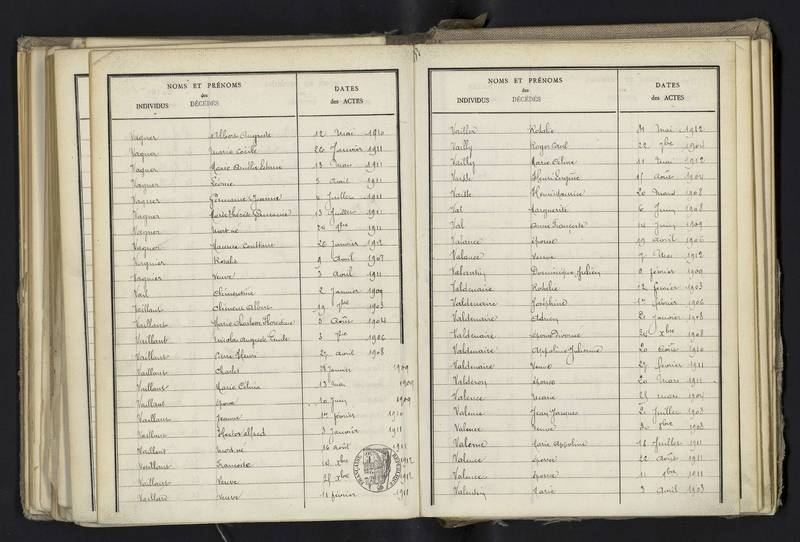 NOMS ET PRÉNOMS
des
INDIVIDUS DÉCÉDÉS
DATES
des ACTES
Vagner Albert Auguste 12 Mai 1910
Vagner Marie Cécile 26 Janvier 1911
Vagner Marie 13 Mai 1911
Vagner Léonie 5 Avril 1911
Vagner Germaine Jeanne 4 Juillet 1911
Vagner Marie Thérèse Germaine 13 Juillet 1911
Vagner Mort né 24 9bre 1911
Vagner Maurice 20 Janvier 1912
Vagnier Rosalie 9 Avril 1907
Vagnier Veuve 3 Avril 1911
Vail Clémentine 2 Janvier 1909
Vaillant Clément Albert 19 9bre 1903
Vaillant Marie Florentine 3 Août 1904
Vaillant Nicolas Auguste Emile 3 7bre 1906
Vaillant Henri 27 avril 1908
Vaillant Charles 28 Janvier 1909
Vaillant Marie Célina 13 Mai 1909
Vaillant Epouse 10 Juin 1909
Vaillant Jeanne 17 février 1910
Vaillant Hector Alfred 3 Janvier 1911
Vaillant Mort né 26 août 1911
Vaillant 14 Xbre 1912
Vaillant Veuve 25 Xbre 1912
Vaillard Veuve 11 février 1911
NOMS ET PRÉNOMS
des
INDIVIDUS DÉCÉDÉS
DATES
des ACTES
Rosalie 21 Mai 1912
Vailly Roger 22 7bre 1904
Vailly Marie Célina 11 Mai 1912
Henri Eugène 15 Août 1904
Henri Maurice 20 Mars 1908
Val Marguerite 6 Juin 1908
Val Anne Françoise 14 Juin 1909
Valance épouse 19 avril 1906
Valance Veuve 7 Mai 1912
Valantin Dominique Julien 9 février 1909
Valdenaire Rosalie 12 février 1903
Valdenaire Joséphine 17 février 1906
Valdenaire Adrien 21 Janvier 1908
Valdenaire 24 Xbre 1908
Valdenaire Appoline Julienne 20 Août 1910
Valdenaire Veuve 27 février 1911
Valderon épouse 20 Mars 1911
Valence Marie 25 Mars 1904
Valence Jean Jacques 21 Juillet 1903
Valence Veuve 30 9bre 1903
Valence Marie Appoline 18 Juillet 1911
Valence épouse 22 Août 1911
Valence épouse 11 Xbre 1911
Valentin Marie 3 Avril 1903